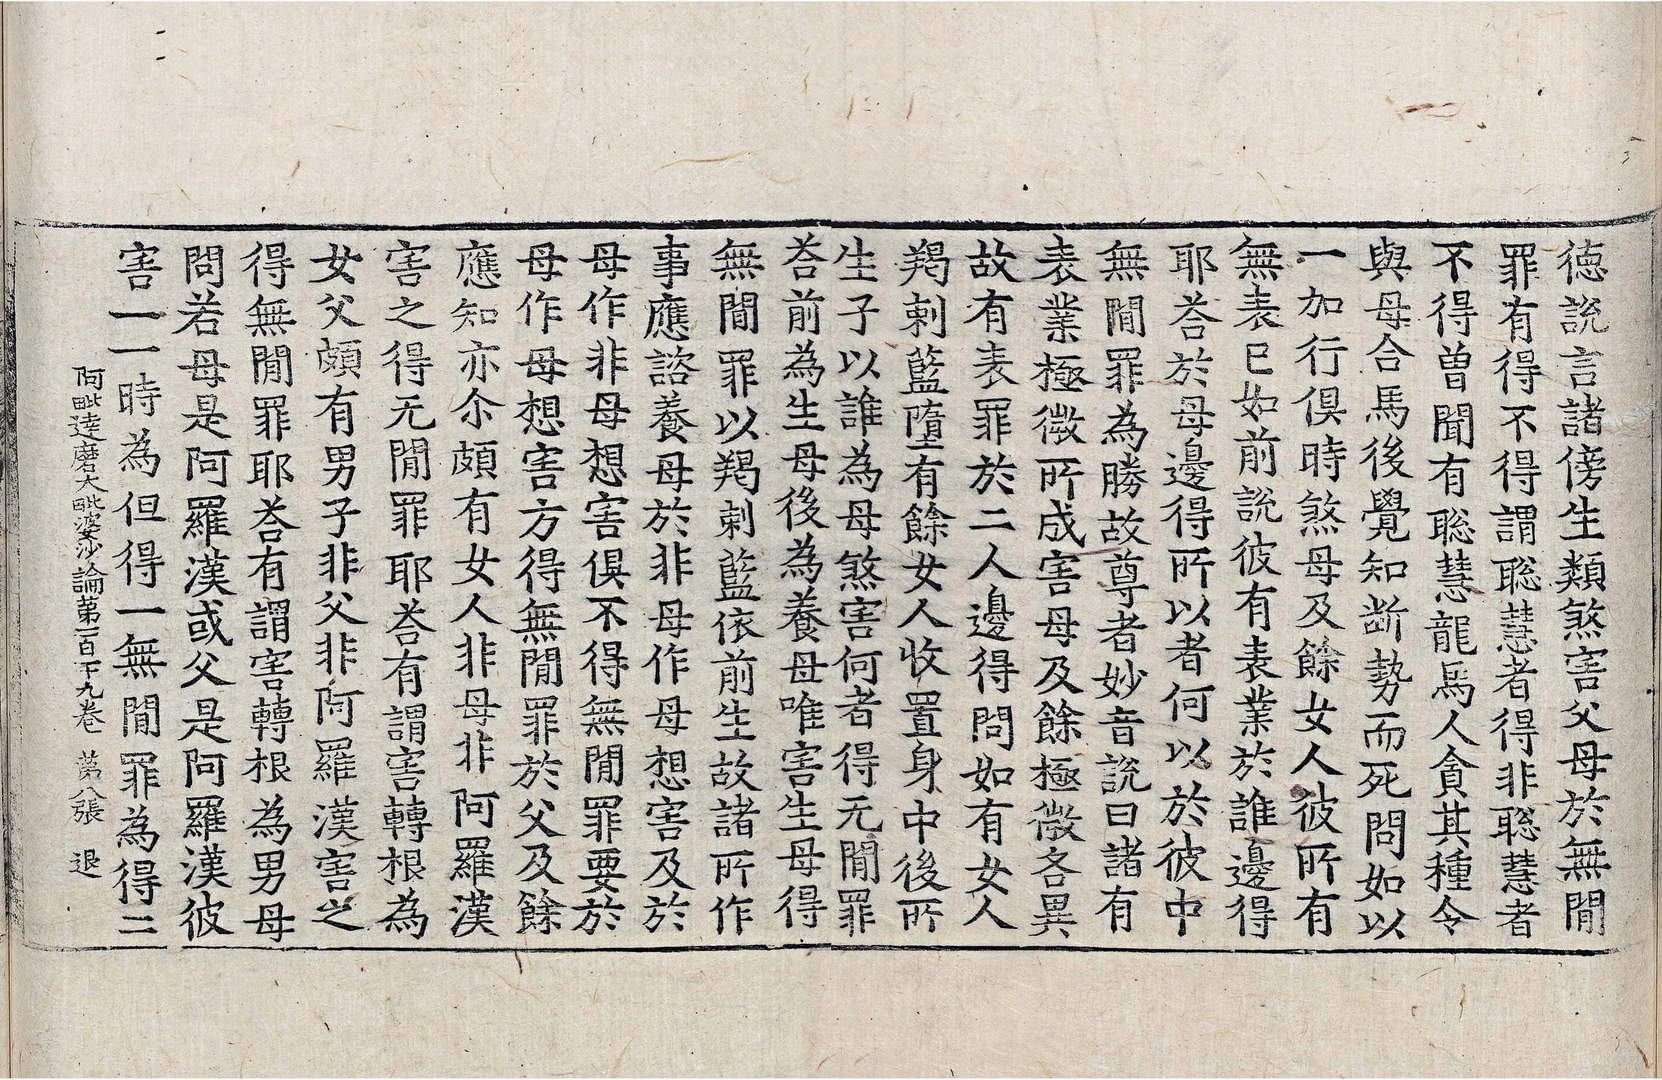 德說言諸傍生類煞害父母於無閒
罪有得不得謂聡慧者得非聡慧者
不得曽聞有聡慧龍馬人貪其種令
與母合馬後覺知断勢而死問如以
一加行俱時煞母及餘女人彼所有
無表已如前說彼有表業於誰邊得
耶荅於母邊得所以者何以於彼中
無閒罪為勝故尊者妙音說曰諸有
表業極微所成害母及餘極微各異
故有表罪於二人邊得問如有女人
羯剌藍墮有餘女人收置身中後所
生子以誰為母煞害何者得无閒罪
荅前為生母後為養母唯害生母得
無閒罪以羯剌藍依前生故諸所作
事應諮養母於非母作母想害及於
母作非母想害俱不得無閒罪要於
母作母想害方得無閒罪於父及餘
應知亦尒頗有女人非母非阿羅漢
害之得无閒罪耶荅有謂害轉根為
女父頗有男子非父非阿羅漢害之
得無閒罪耶荅有謂害轉根為男母
問若母是阿羅漢或父是阿羅漢彼
害一一時為但得一無閒罪為得二
阿毗達磨大毗婆沙論第一百十九卷 第八張 退